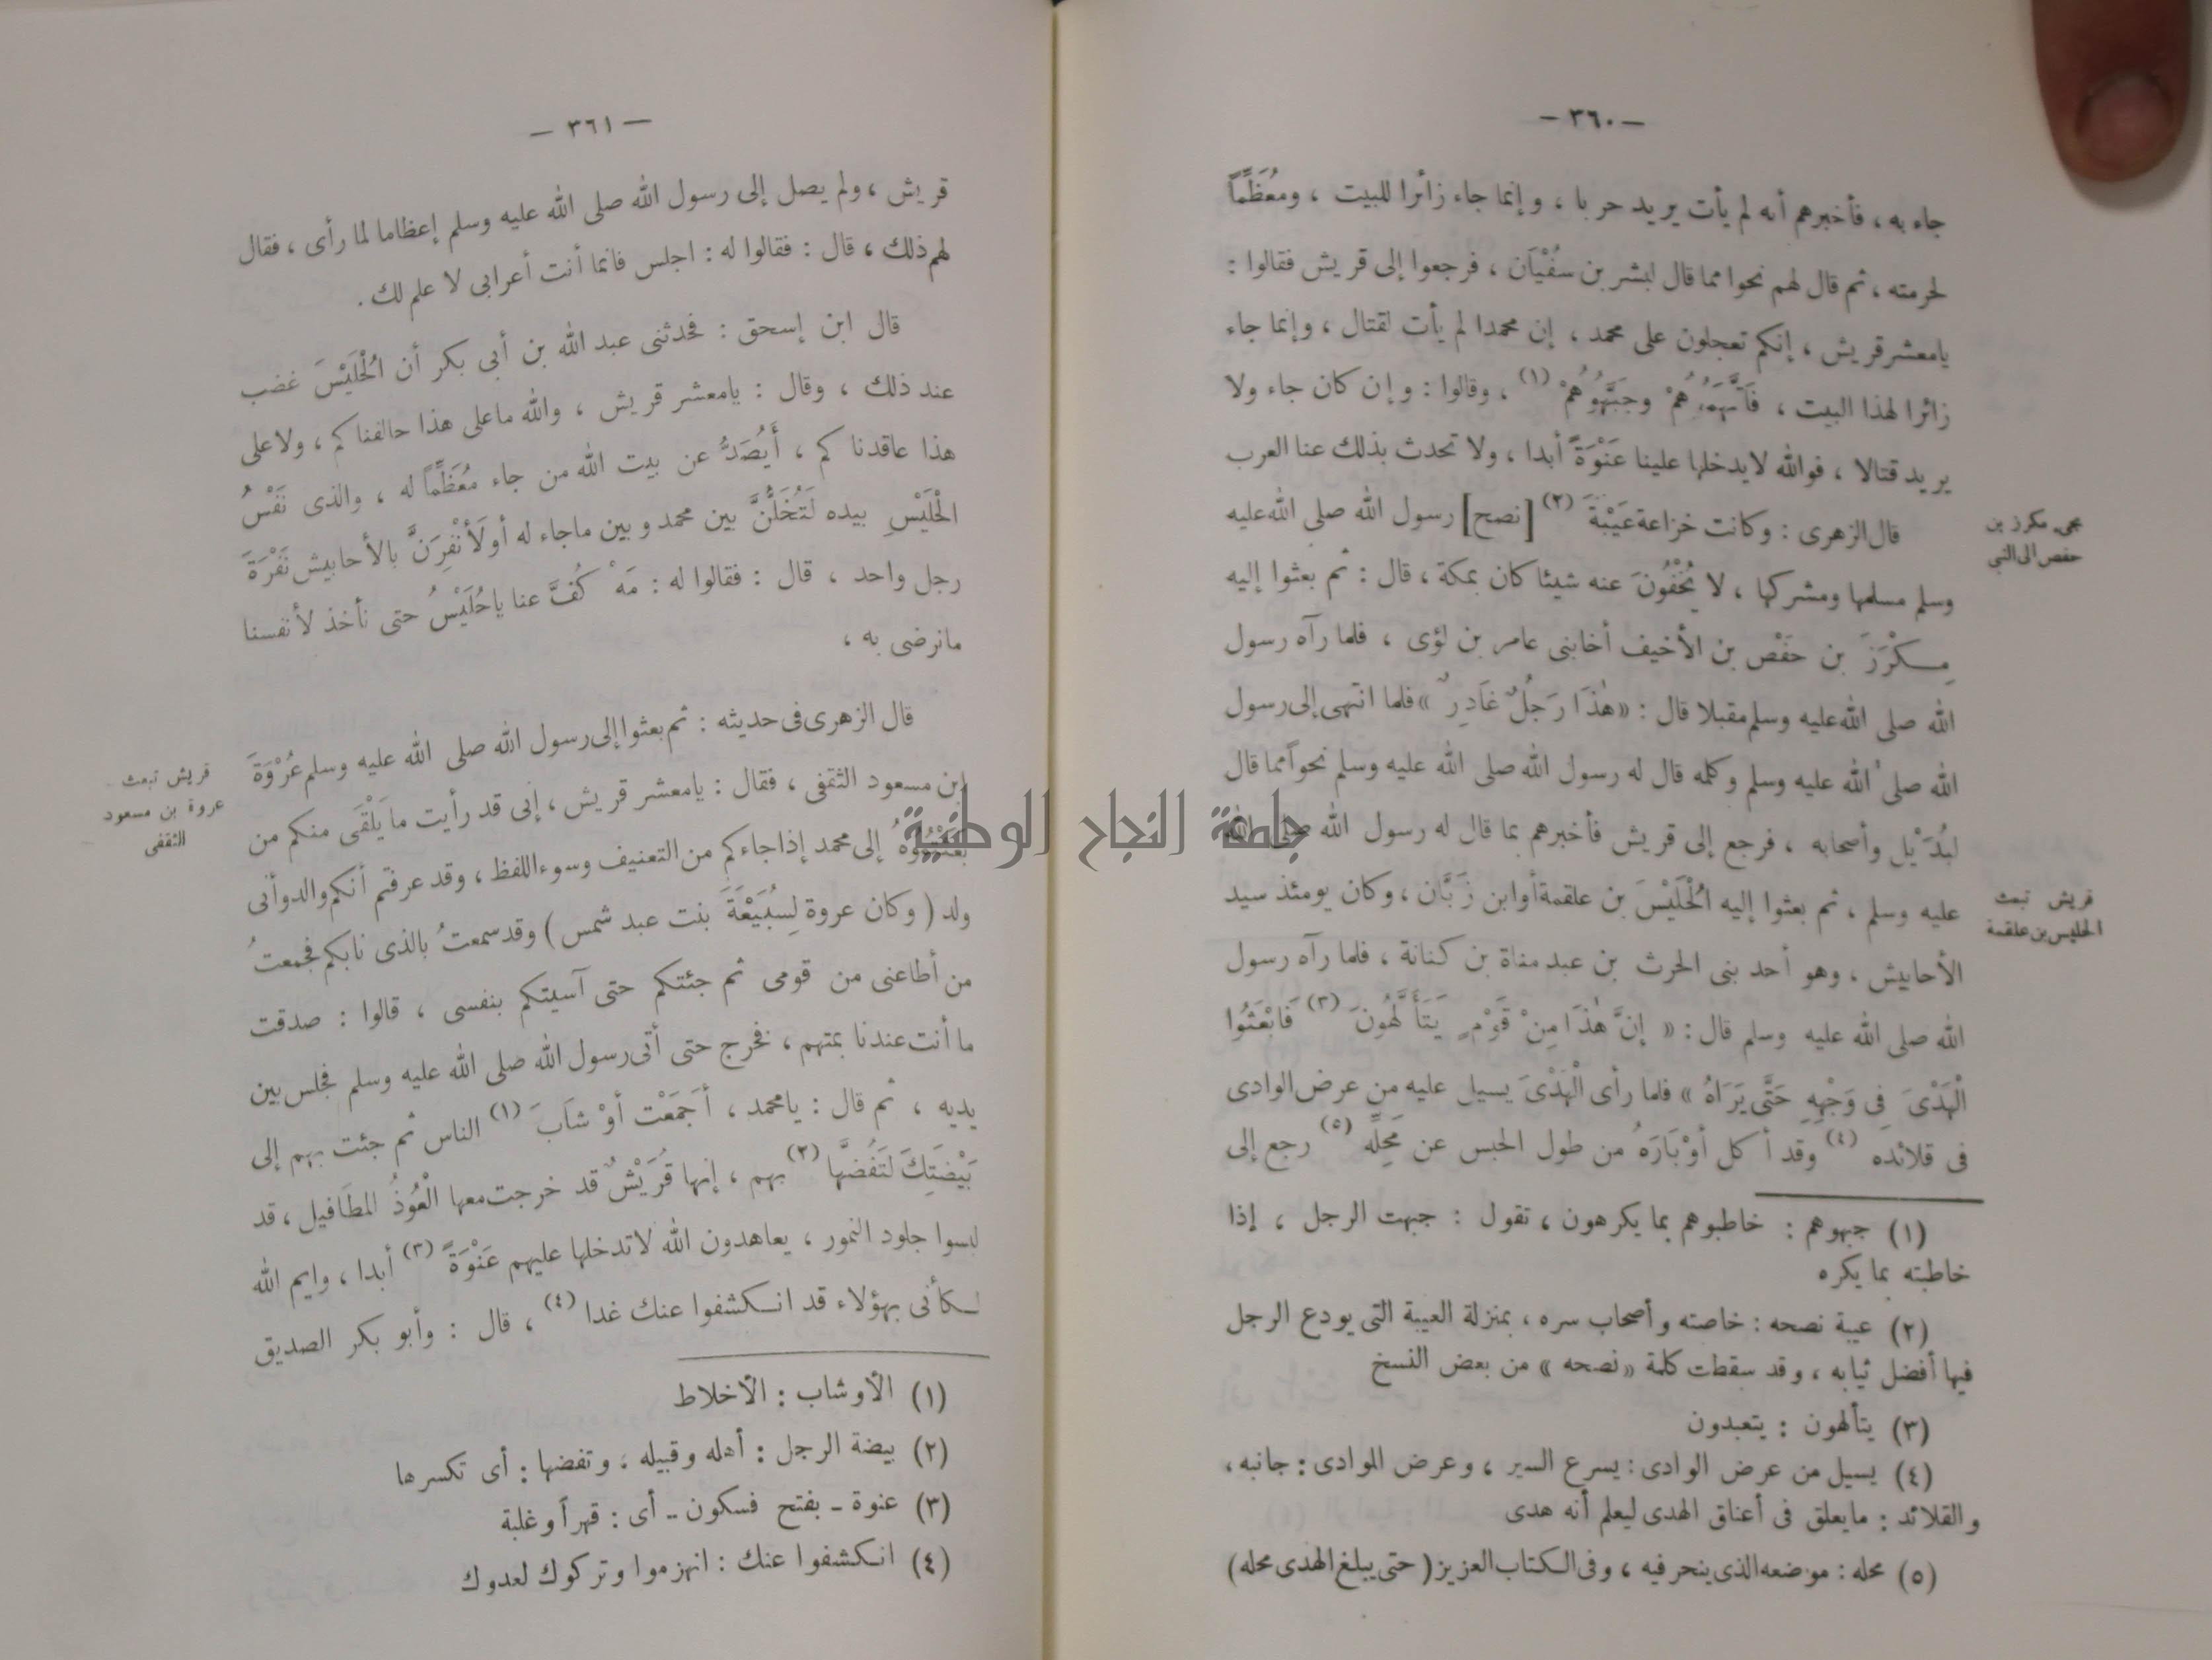 — ٣٦٠ —
جاء به ، فأخبرهم أنه لم يأت يريد حربا ، وإنما جاء زائرا للبيت ، ومُعَظِّمًا
لحرمته ، ثم قال لهم نحوا مما قال لبشر بن سُفْيَان ، فرجعوا إلى قريش فقالوا :
يامعشر قريش ، إنكم تعجلون على محمد ، إن محمدا لم يأت لقتال ، وإنما جاء
زائرا لهذا البيت ، فَاتَّهَمُوهُمْ وجَبَّهُوهُمْ (١) ، وقالوا : وإن كان جاء ولا
يريد قتالا ، فوالله لايدخلها علينا عَنْوَةً أبدا ، ولا تحدث بذلك عنا العرب
قال الزهرى : وكانت خزاعة عَيْبَةَ (٢) [نصح] رسول الله صلى الله عليه
وسلم مسلمها ومشركها ، لا يُخْفُونَ عنه شيئا كان بمكة ، قال : ثم بعثوا إليه
مِكْرَزَ بن حَفْص بن الأخيف أخا بنى عامر بن لؤى ، فلما رآه رسول
الله صلى الله عليه وسلم مقبلا قال : « هٰذَا رَجُلٌ غَادِرٌ » فلما انتهى إلى رسول
الله صلى الله عليه وسلم وكلمه قال له رسول الله صلى الله عليه وسلم نحواً مما قال
لبُدَيْل وأصحابه ، فرجع إلى قريش فأخبرهم بما قال له رسول الله صلى الله
عليه وسلم ، ثم بعثوا إليه الْحُلَيْسَ بن علقمة أو ابن زَبَّان ، وكان يومئذ سيد
الأحابيش ، وهو أحد بنى الحرث بن عبد مناة بن كنانة ، فلما رآه رسول
الله صلى الله عليه وسلم قال : « إنَّ هٰذَا مِنْ قَوْمٍ يَتَأَلَّهُونَ (٣) فَابْعَثُوا
الْهَدْىَ فِى وَجْهِهِ حَتَّى يَرَاهُ » فلما رأى الْهَدْىَ يسيل عليه من عرض الوادى
فى قلائده (٤) وقد أكل أوْبَارَهُ من طول الحبس عن مَحِلِّه (٥) رجع إلى
(١) جبهوهم : خاطبوهم بما يكرهون ، تقول : جبهت الرجل ، إذا
خاطبته بما يكره
(٢) عيبة نصحه : خاصته وأصحاب سره ، بمنزلة العيبة التى يودع الرجل
فيها أفضل ثيابه ، وقد سقطت كلمة « نصحه » من بعض النسخ
(٣) يتألهون : يتعبدون
(٤) يسيل من عرض الوادى : يسرع السير ، وعرض الوادى : جانبه ،
والقلائد : مايعلق فى أعناق الهدى ليعلم أنه هدى
(٥) محله : موضعه الذى ينحر فيه ، وفى الكتاب العزيز ( حتى يبلغ الهدى محله )
مجىء مكرز بن
حفص الى النبى
قريش تبعث
الحليس بن علقمة
— ٣٦١ —
قريش ، ولم يصل إلى رسول الله صلى الله عليه وسلم إعظاما لما رأى ، فقال
لهم ذلك ، قال : فقالوا له : اجلس فانما أنت أعرابى لا علم لك .
قال ابن إسحق : فحدثنى عبد الله بن أبى بكر أن الْحُلَيْسَ غضب
عند ذلك ، وقال : يامعشر قريش ، والله ماعلى هذا حالفناكم ، ولا على
هذا عاقدناكم ، أَيُصَدُّ عن بيت الله من جاء مُعَظِّمًا له ، والذى نَفْسُ
الْحُلَيْسِ بيده لَتُخَلُّنَّ بين محمد وبين ماجاء له أو لَأَنْفِرَنَّ بالأحابيش نَفْرَةَ
رجل واحد ، قال : فقالوا له : مَهْ كُفَّ عنا ياحُلَيْسُ حتى نأخذ لأنفسنا
مانرضى به ،
قال الزهرى فى حديثه : ثم بعثوا إلى رسول الله صلى الله عليه وسلم عُرْوَةَ
ابن مسعود الثقفى ، فقال : يامعشر قريش ، إنى قد رأيت ما يَلْقَى منكم من
بَعَثْتُمُوهُ إلى محمد إذا جاءكم من التعنيف وسوء اللفظ ، وقد عرفتم أنكم والد وأنى
ولد ( وكان عروة لِسُبَيْعَةَ بنت عبد شمس ) وقد سمعتُ بالذى نابكم فجمعتُ
من أطاعنى من قومى ثم جئتكم حتى آسيتكم بنفسى ، قالوا : صدقت
ما أنت عندنا بمتهم ، فخرج حتى أتى رسول الله صلى الله عليه وسلم فجلس بين
يديه ، ثم قال : يامحمد ، أَجَمَعْتَ أَوْشَابَ (١) الناس ثم جئت بهم إلى
بَيْضَتِكَ لتَفُضَّهَا (٢) بهم ، إنها قُرَيْشٌ قد خرجت معها الْعُوذُ المطَافيل ، قد
لبسوا جلود النمور ، يعاهدون الله لاتدخلها عليهم عَنْوَةً (٣) أبدا ، وايم الله
لكأنى بهؤلاء قد انكشفوا عنك غدا (٤) ، قال : وأبو بكر الصديق
(١) الأوشاب : الأخلاط
(٢) بيضة الرجل : أهله وقبيله ، وتفضها : أى تكسرها
(٣) عنوة - بفتح فسكون - أى : قهراً وغلبة
(٤) انكشفوا عنك : انهزموا وتركوك لعدوك
قريش تبعث
عروة بن مسعود
الثقفى
جامعة النجاح الوطنية